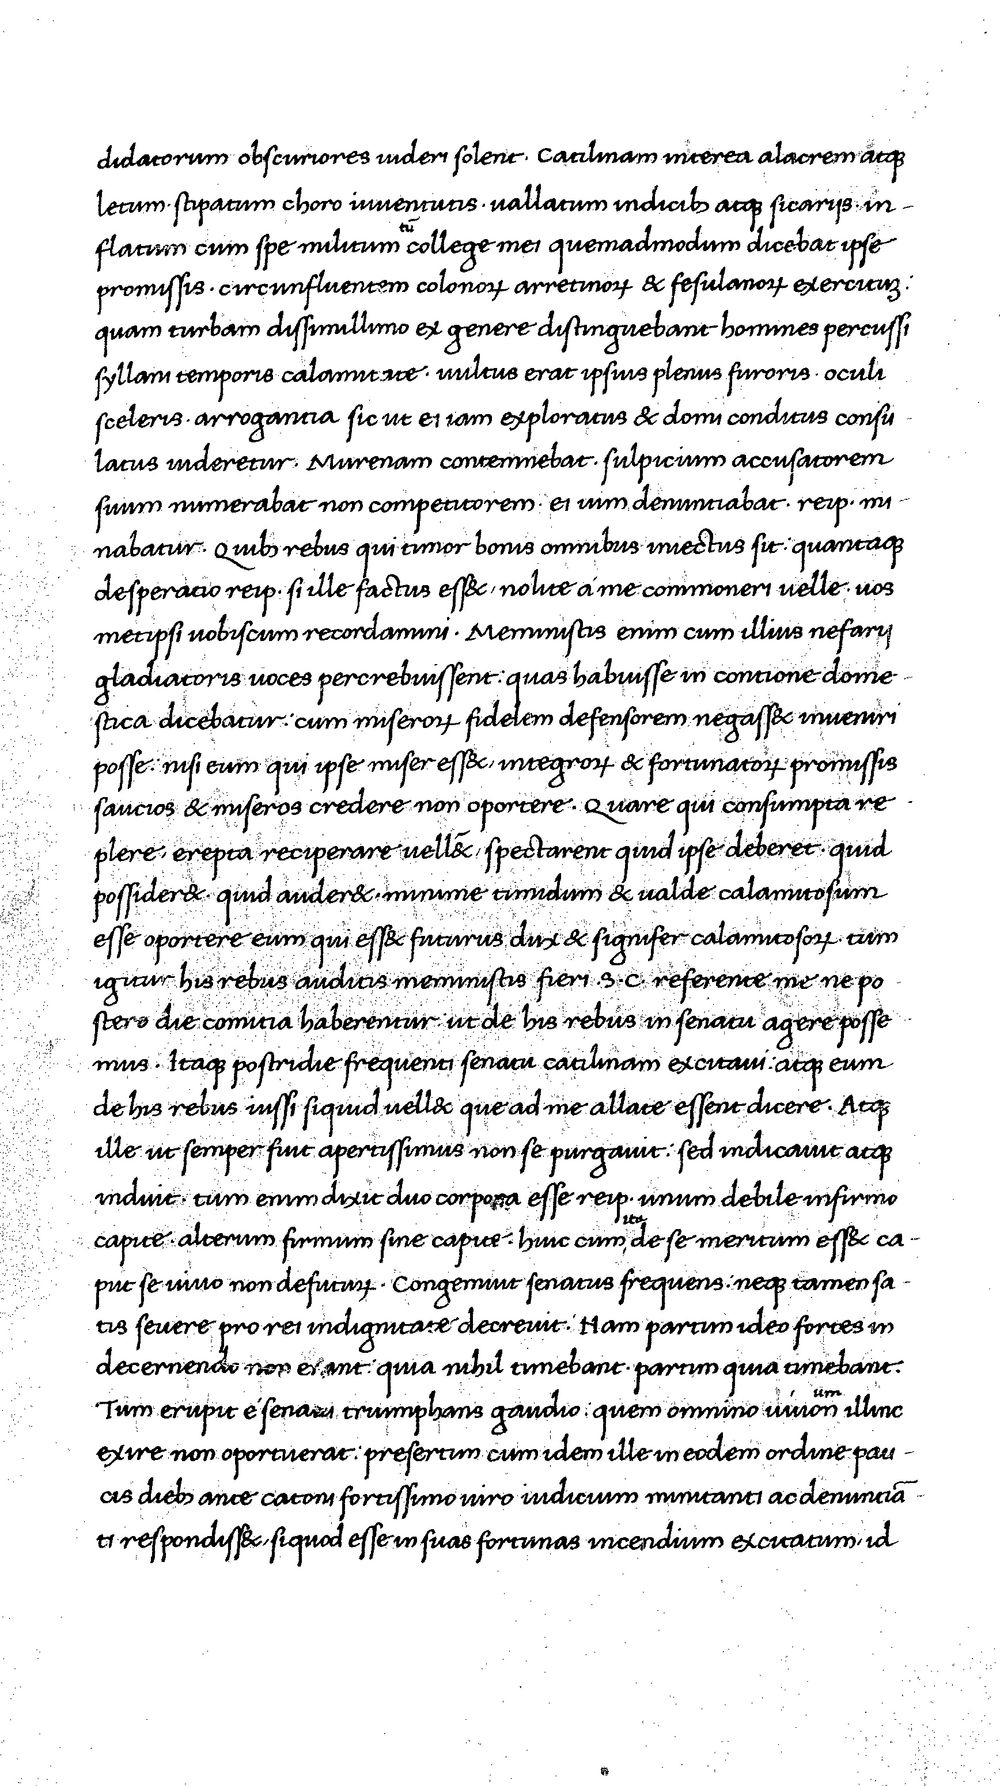 didatorum obscuriores uideri solent · Catilinam interea alacrem atq;
letum · stipatum choro iuuentutis · uallatum indicib; atq; sicarijs · in-
flatum cum spe militum tū college mei quemadmodum dicebat ipse
promissis · circunfluentem colonoꝝ arretinoꝝ & fesulanoꝝ exercitu :
quam turbam dissimillimo ex genere distinguebant homines percussi
syllani temporis calamitate · uultus erat ipsius plenus furoris · oculi
sceleris · arrogantia sic ut ei iam exploratus & domi conditus consu
latus uideretur · Murenam contemnebat · sulpicium accusatorem
suum numerabat non competitorem · ei uim denuntiabat · reip · mi-
nabatur · Quib; rebus qui timor bonis omnibus iniectus sit : quantaq;
desperatio reip · si ille factus ess& , nolite a me commoneri uelle · uos
metipsi uobiscum recordamini · Meministis enim cum illius nefarij
gladiatoris uoces percrebuissent : quas habuisse in contione dome
stica dicebatur : cum miseroꝝ fidelem defensorem negass& inueniri
posse : nisi eum qui ipse miser ess& , integroꝝ & fortunatoꝝ promissis
saucios & miseros credere non oportere · Quare qui consumpta re
plere , erepta reciperare uell&̄ , spectarent quid ipse deberet · quid
possider& · quid auder& · minime timidum & ualde calamitosum
esse oportere eum qui ess& futurus dux & signifer calamitosoꝝ · tum
igitur his rebus auditis meministis fieri · S · C · referente me ne po
stero die comitia haberentur · ut de his rebus in senatu agere posse
mus · Itaq; postridie frequenti senatu catilinam excitaui : atq; eum
de his rebus iussi siquid uell& que ad me allate essent dicere · Atq;
ille ut semper fuit apertissimus non se purgauit : sed indicauit atq;
induit · tum enim dixit duo corpora esse reip · unum debile infirmo
capite · alterum firmum sine capite · huic cum ita de se meritum ess& ca-
put se uiuo non defuturꝝ · Congemuit senatus frequens : neq; tamen sa-
tis seuere pro rei indignitate decreuit : Nam partim ideo fortes in
decernendo non erant : quia nihil timebant · partim quia timebant :
Tum erupit e senatu triumphans gaudio : quem omnino uiuon um illinc
exire non oportuerat : presertim cum idem ille in eodem ordine pau-
cis dieb; ante catoni fortissimo uiro iudicium minitanti ac denuntiā-
ti respondiss& , siquod esse in suas fortunas incendium excitatum , id